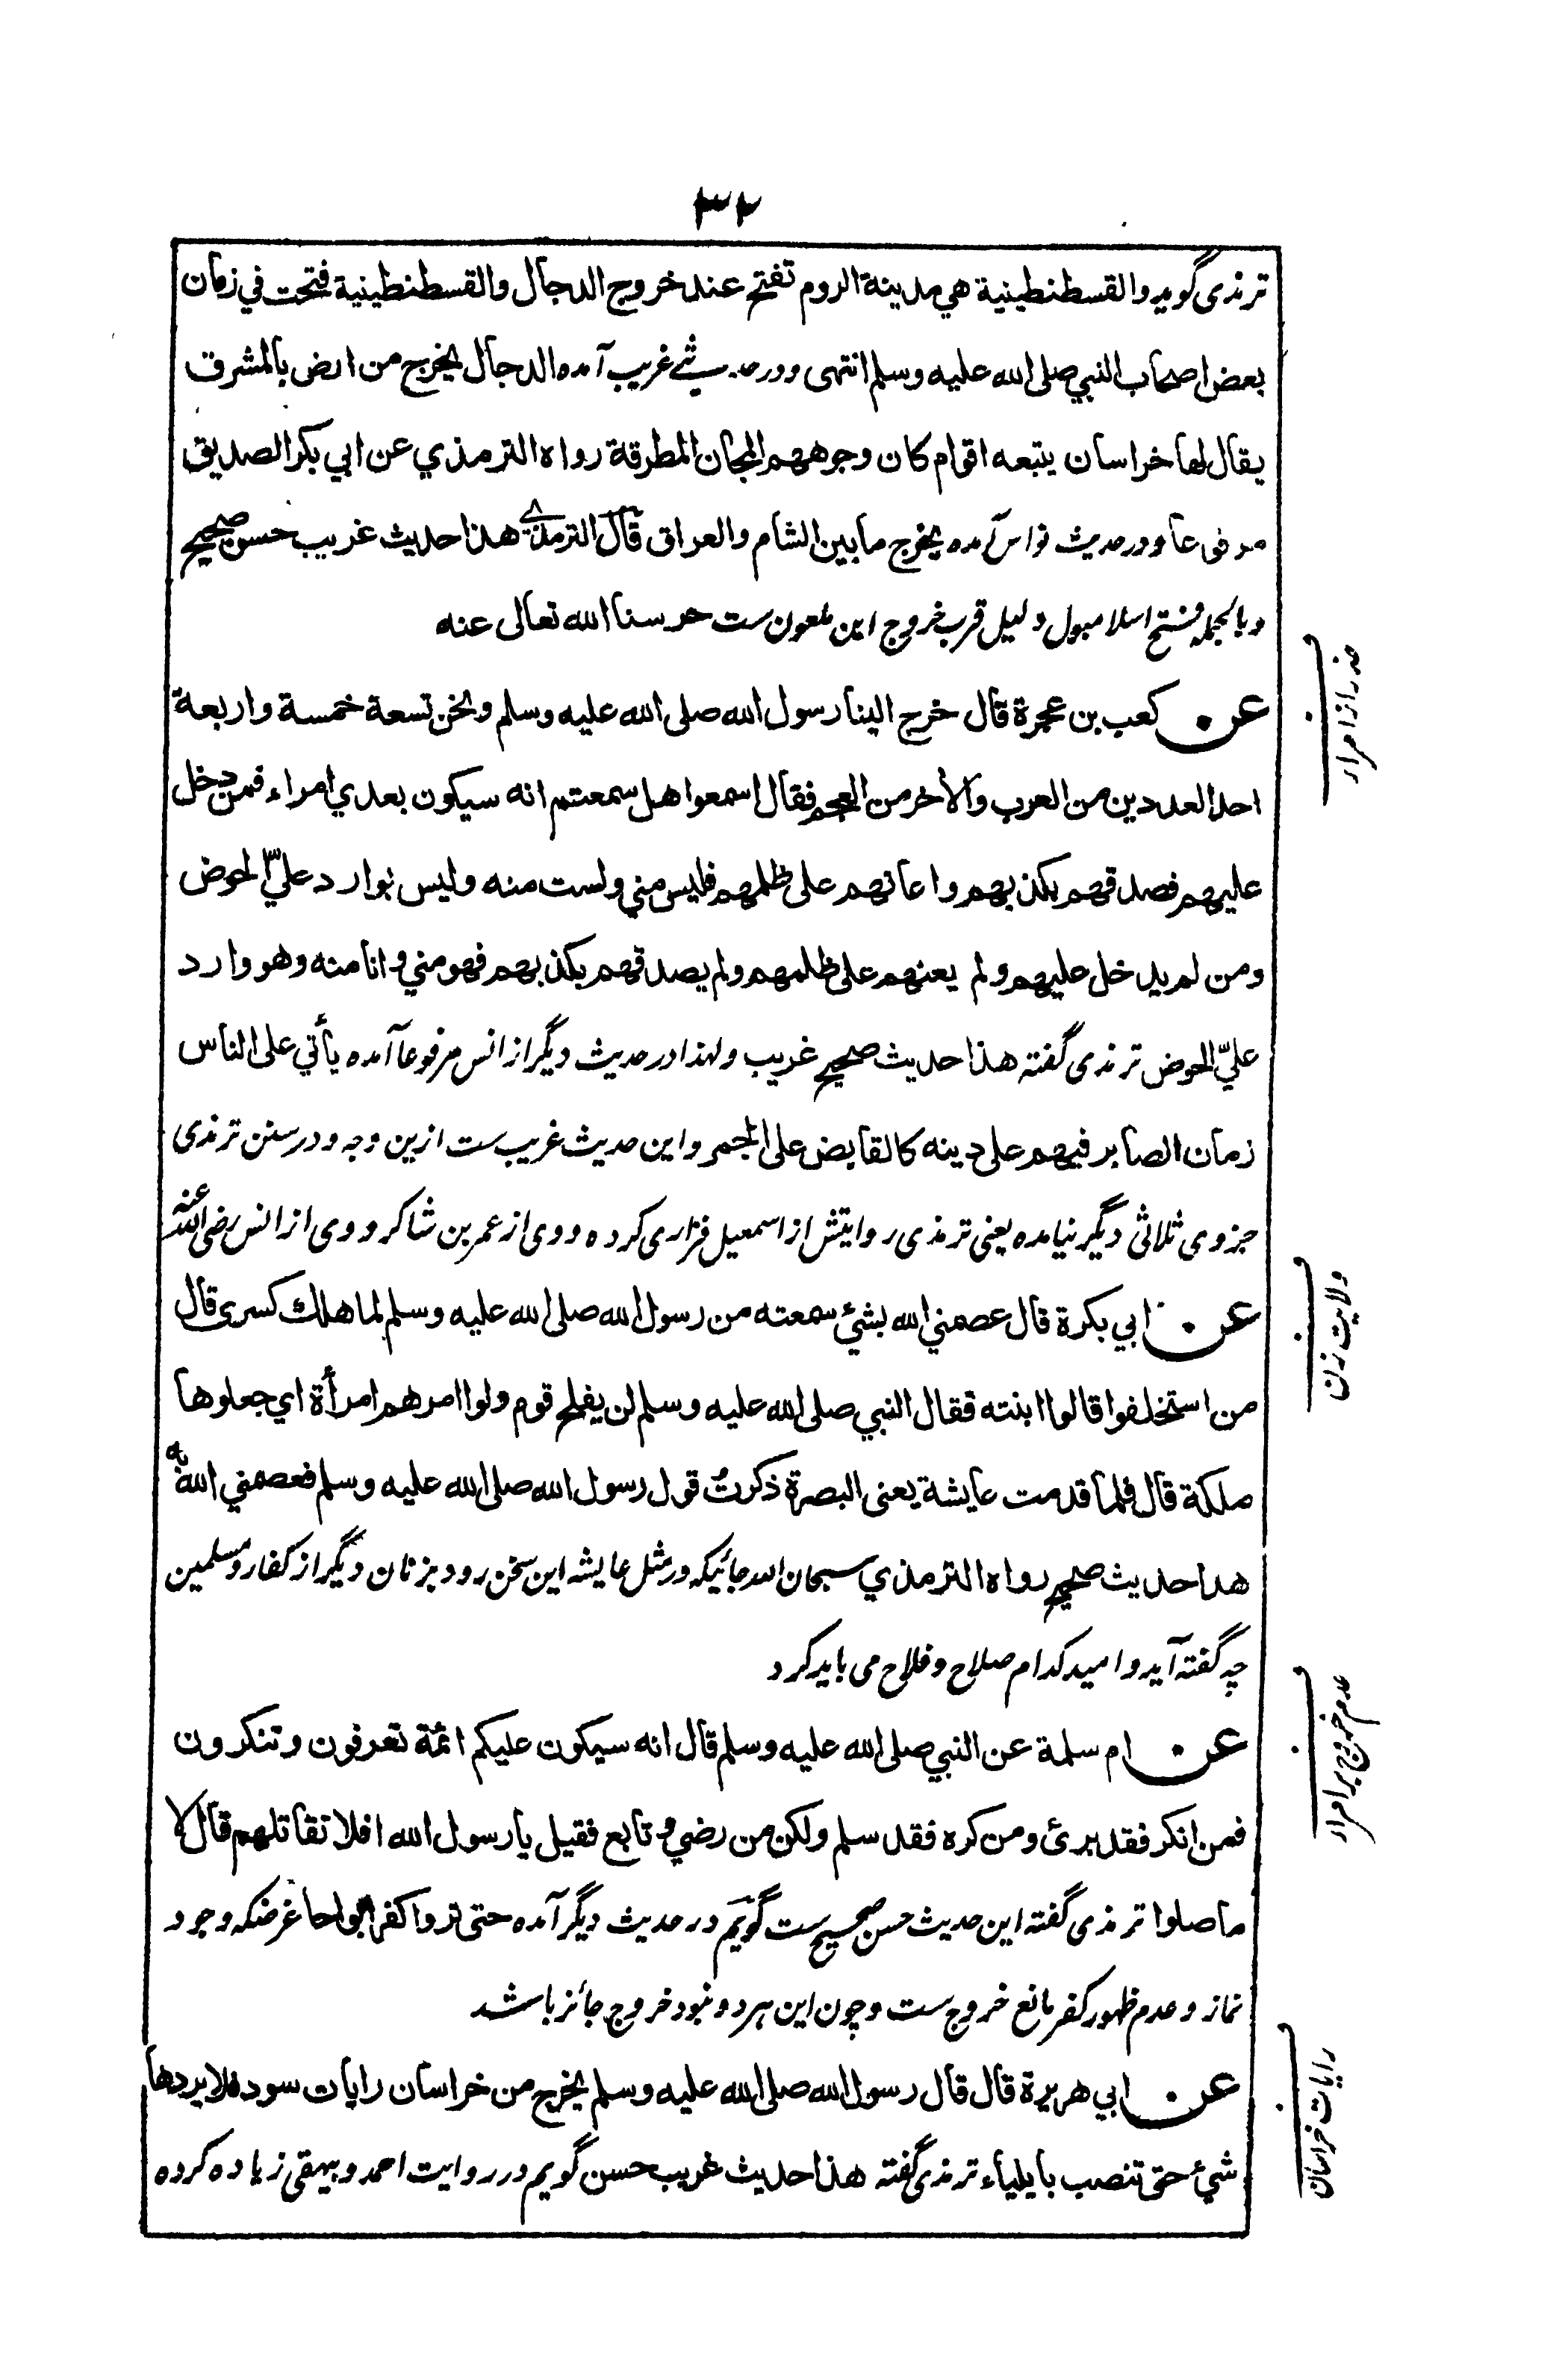 ۳۲
ترمذی گوید والقسطنطينية هي مدينة الروم تفتح عند خروج الدجال والقسطنطينية فتحت في زمان
بعض اصحاب النبي صلى الله عليه وسلم انتهى ودر حدیثے غریب آمده الدجال يخرج من ارض بالمشرق
يقال لها خراسان يتبعه اقوام كان وجوههم المجان المطرقة رواه الترمذي عن ابي بكر الصديق
مرفوعا ودر حدیث نواس آمده يخرج ما بين الشام والعراق قال الترمذي هذا حديث غريب حسن صحيح
وبالجمله فتح اسلامبول دلیل قرب خروج این ملعون ست حرسنا الله تعالى عنه
عن كعب بن عجرة قال خرج الينا رسول الله صلى الله عليه وسلم ونحن تسعة خمسة واربعة
احد العددين من العرب والأخر من العجم فقال اسمعوا هل سمعتم انه سيكون بعدي امراء فمن دخل
عليهم فصدقهم بكذبهم واعانهم على ظلمهم فليس مني ولست منه وليس بوارد عليّ الحوض
ومن لم يدخل عليهم ولم يعنهم على ظلمهم ولم يصدقهم بكذبهم فهو مني وانا منه وهو وارد
عليّ الحوض ترمذی گفته هذا حديث صحيح غريب ولهذا در حدیث دیگر از انس مرفوعا آمده يأتي على الناس
زمان الصابر فيهم على دينه كالقابض على الجمر واین حدیث غریب ست ازین وجه ودر سنن ترمذی
جز وی ثلاثی دیگر نیامده یعنی ترمذی روایتش از اسمعیل فزاری کرده ووی از عمر بن شاکر ووی از انس رضی الله عنه
عن ابي بكرة قال عصمني الله بشئ سمعته من رسول الله صلى الله عليه وسلم لما هلك كسرى قال
من استخلفوا قالوا ابنته فقال النبي صلى الله عليه وسلم لن يفلح قوم ولوا امرهم امرأة اي جعلوها
ملكة قال فلما قدمت عايشة يعنى البصرة ذكرتُ قول رسول الله صلى الله عليه وسلم فعصمني الله به
هذا حديث صحيح رواه الترمذي سبحان الله جائیکه در مثل عایشه این سخن رود بزنان دیگر از کفار ومسلمین
چه گفته آید وامید کدام صلاح وفلاح می باید کرد
عن ام سلمة عن النبي صلى الله عليه وسلم قال انه سيكون عليكم ائمة تعرفون وتنكرون
فمن انكر فقد برئ ومن كره فقد سلم ولكن من رضي وتابع فقيل يا رسول الله افلا نقاتلهم قال لا
ما صلوا ترمذی گفته این حدیث حسن صحیح ست گویم در حدیث دیگر آمده حتى تروا كفرا بواحا غرضکه وجود
نماز وعدم ظهور کفر مانع خروج ست وچون این هر دو نبود خروج جائز باشد
عن ابي هريرة قال قال رسول الله صلى الله عليه وسلم يخرج من خراسان رايات سود فلا يردها
شيء حتى تنصب بايلياء ترمذی گفته هذا حديث غريب حسن گویم در روایت احمد وبیهقی زیاده کرده
حذر از امراء
ولایت زن
عدم خروج بر امراء
رایات خراسان